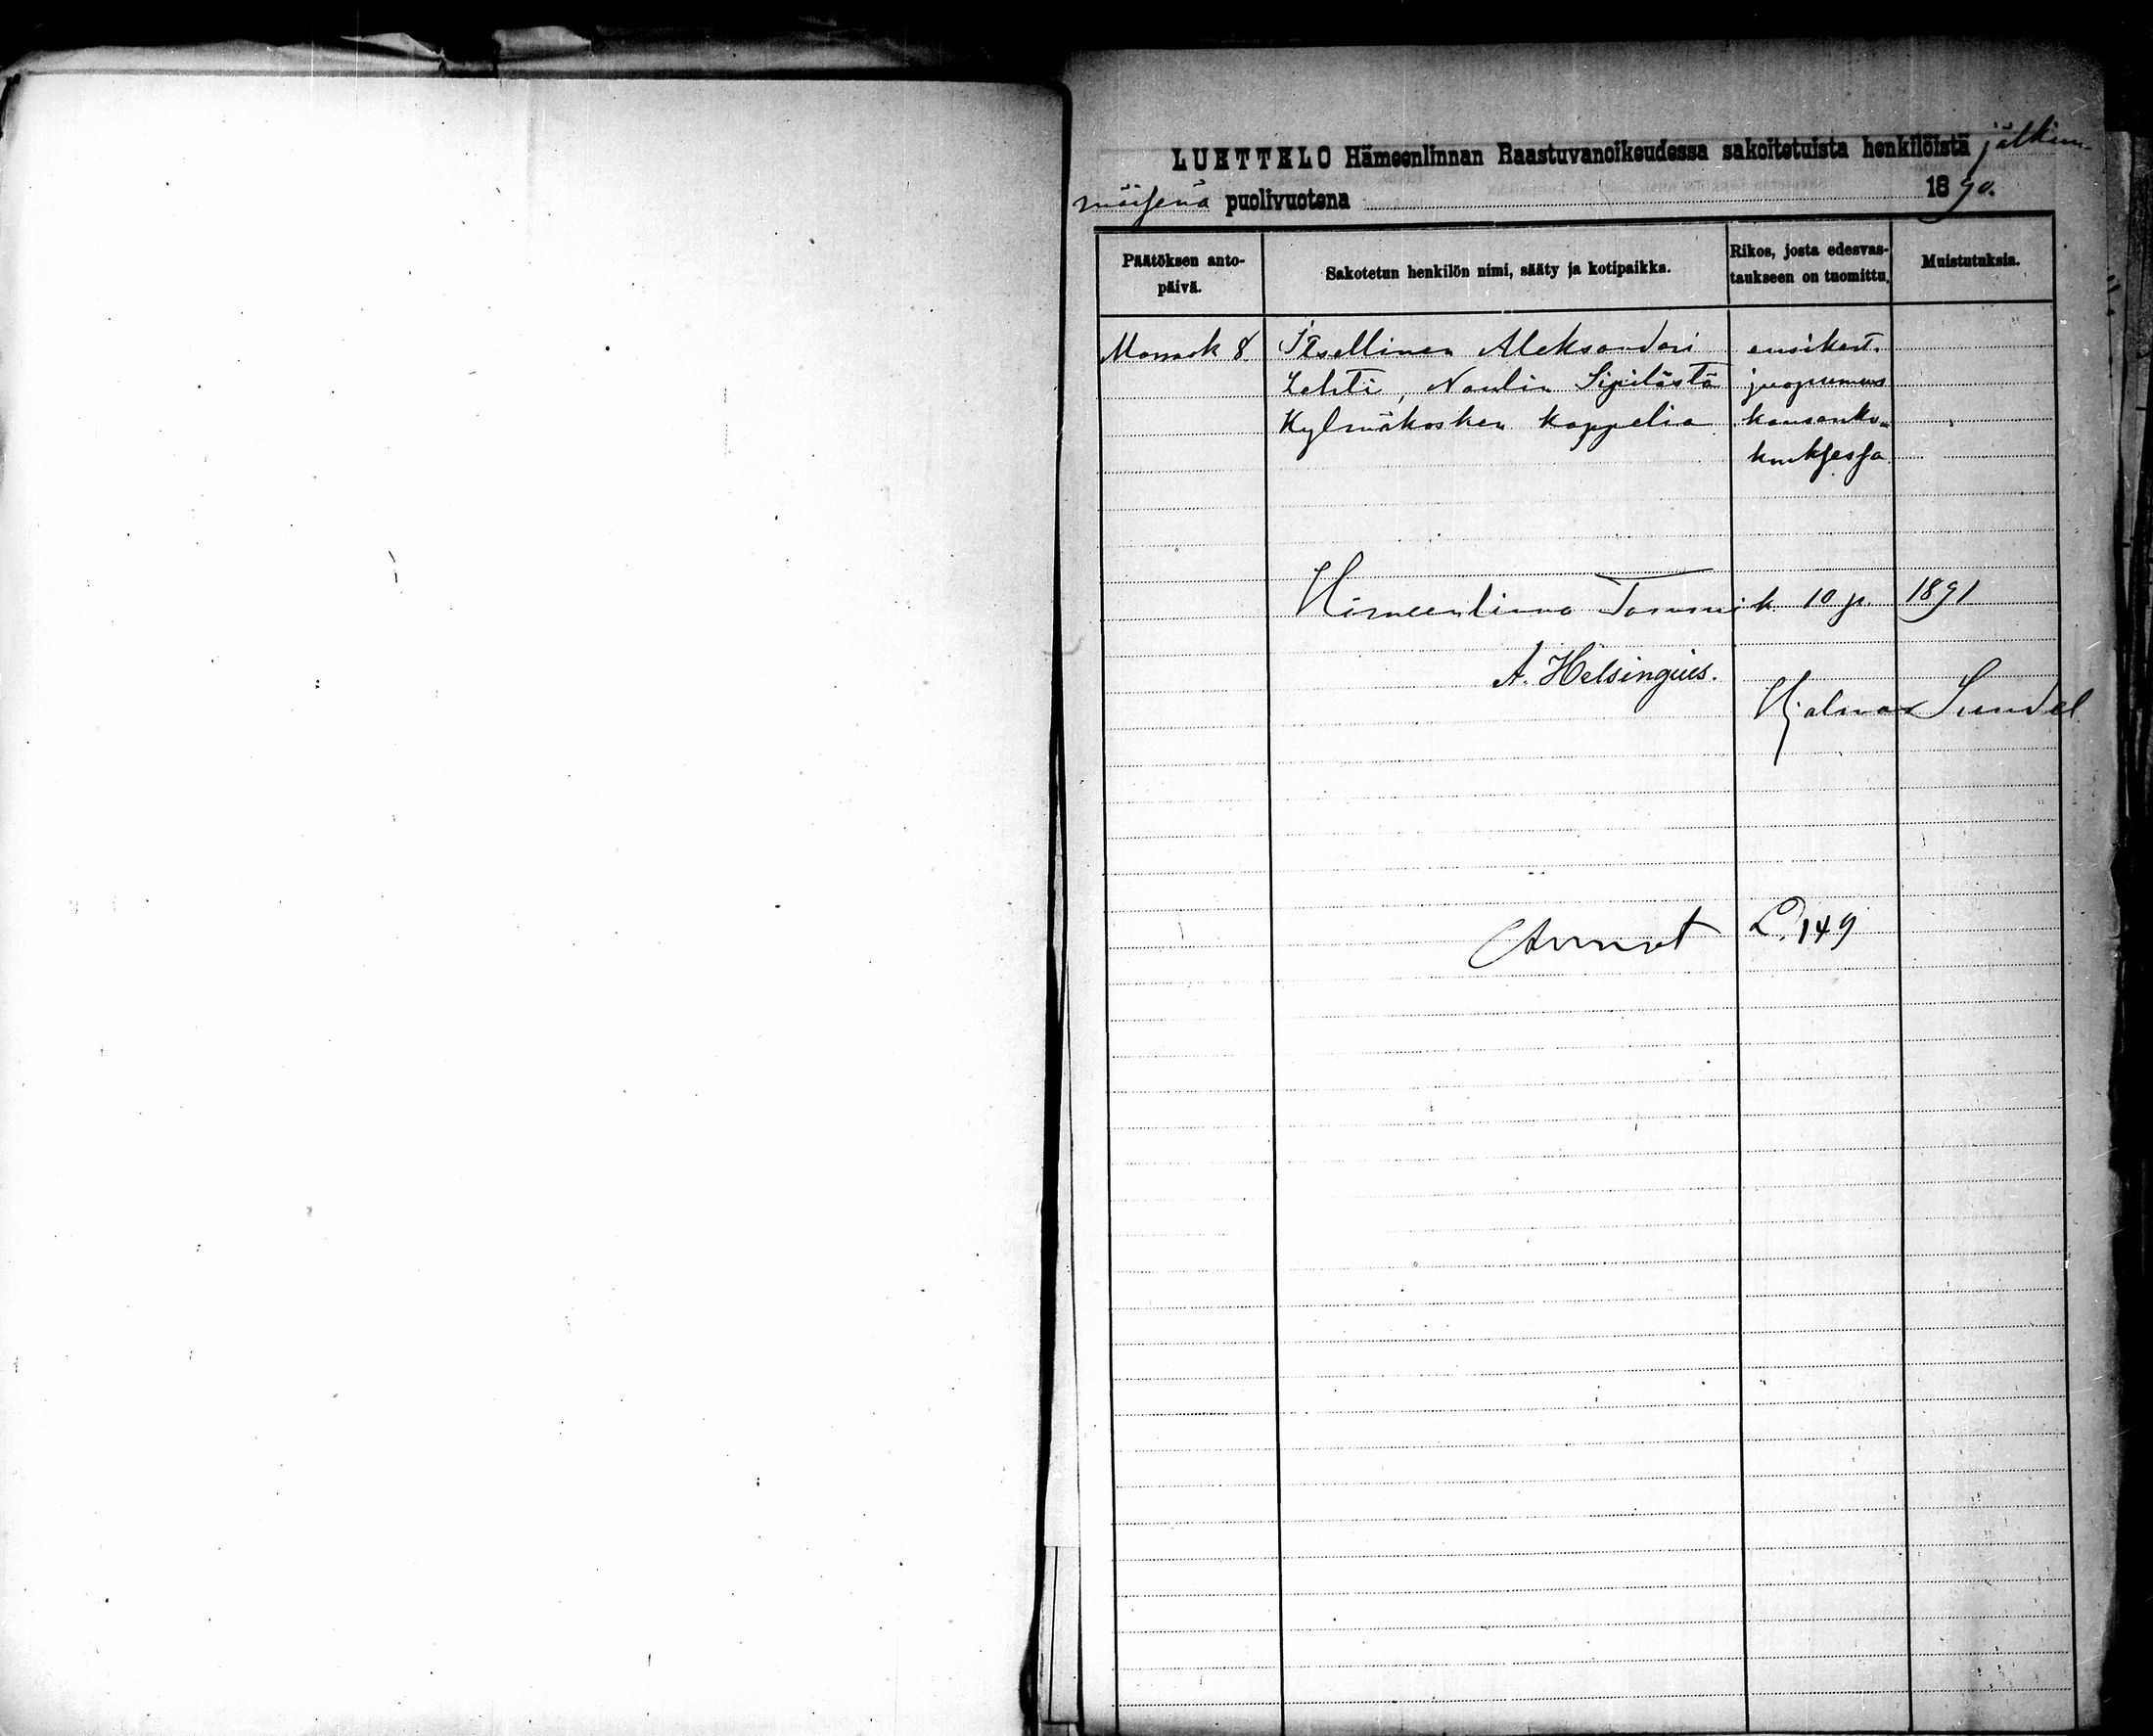 LUETTELO Hämeenlinnan Raastuvanoikeudessa sakoitetuista henkilöistä jälkim-
mäisenä puolivuotena 1890.
Päätöksen anto-
päivä.
Sakotetun henkilön nimi, sääty ja kotipaikka.
Rikos, josta edesvas-
taukseen on tuomittu.
Muistutuksia.
Marrask 8 Itsellinen Aleksandari ensikert.
Lehti, Naulin Sipilästä juopumus
Kylmäkosken kappelia kansanko-
kouksessa
Hämeenlinna Tammik. 10 p. 1891
A. Helsingius.
Hjalmar Sundel
L. 149